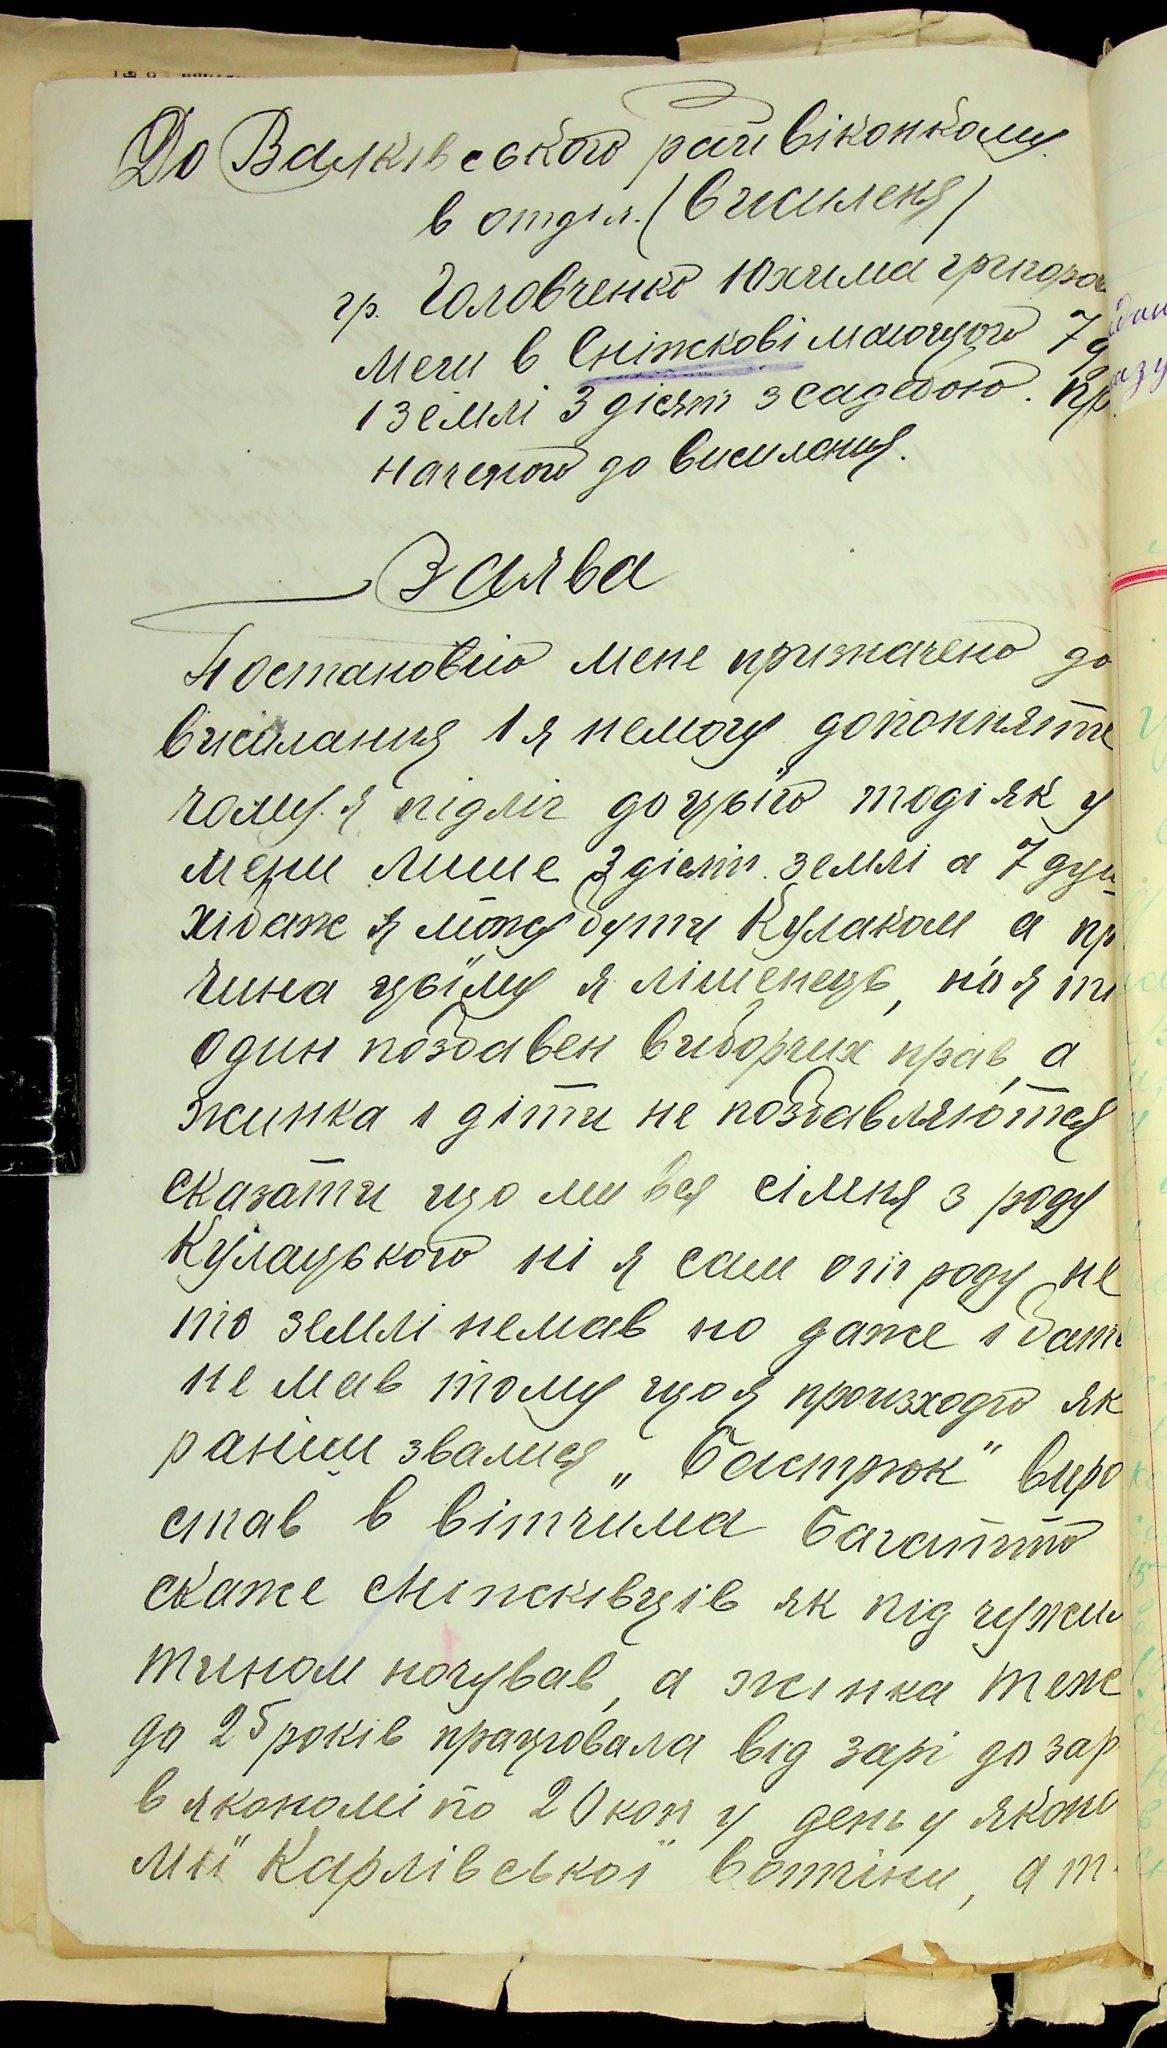 До Валківського райвіконкому
в отділ. (висиленя)
гр. Головченко Юхима григоров
меги в Сніжкові мающого 7 д
і землі 3 дісят з садебою. пр
наченого до висилання.
Заява
Постановлію мене призначено до
висилания і я немогу допонняти
чому я підліг до цьїго тоді як у
мени лише 3 дісят. землі а 7 душ
хібаж я можу бути Кулаком а пр
чина цьїму я лішенець, но я ти
один поздавен виборчих прав, а
жинка і діти не поздавляются
сказати що ми вся сімня з роду
Кулацького ні я сам отроду не
то землі немав но даже і бать
не мав тому що я происходю як
раніш звалися „Бастрюк" виро
став в вітчима багатто
скаже сніжківців як під чужим
тином ночував, а жінка теж
до 25 років працювала від зарі до зар
в якономі по 20 коп у день у яконо
мії Карлівської вотчіни, а т